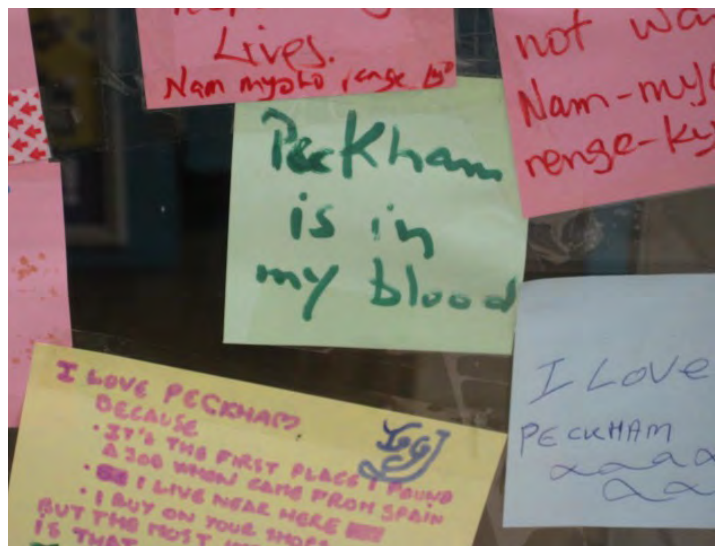 Lives.
Nam myoho renge kyo
not wa
Nam-myo
renge-ky
Peckham
is in
my blood
I LOVE
PECKHAM
I LOVE PECKHAM
BECAUSE
· IT'S THE FIRST PLACE I FOUND
A JOB WHEN CAME FROM SPAIN
· I LIVE NEAR HERE
· I BUY ON YOUR SHOPS
BUT THE MOST
IS THAT